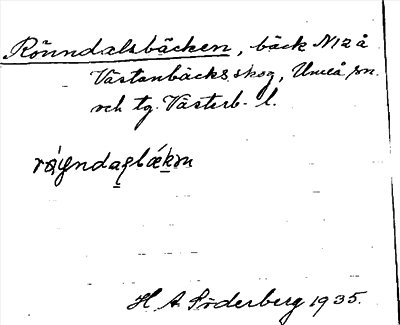 Rönndalsbäcken, bäck N12 å
Västanbäcks skog, Umeå sn.
och tg. Västerb. l.
H A Söderberg 1935.